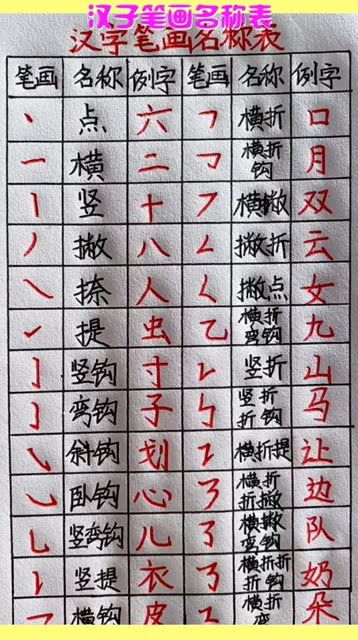 汉子笔画名称表
汉字笔画名称表
笔画 名称 例字 笔画 名称 例字
㇔ 点 六 ㇕ 横折 口
㇐ 横 二 ㇆ 横折钩 月
㇑ 竖 十 ㇇ 横撇 双
㇒ 撇 八 ㇜ 撇折 云
㇏ 捺 人 ㇛ 撇点 女
㇀ 提 虫 ㇈ 横折弯钩 九
㇚ 竖钩 寸 ㇗ 竖折 山
㇁ 弯钩 子 ㇉ 竖折折钩 马
㇂ 斜钩 划 ㇊ 横折提 让
㇃ 卧钩 心 ㇋ 横折折撇 边
㇟ 竖弯钩 儿 ㇌ 横撇弯钩 队
㇙ 竖提 衣 ㇡ 横折折折钩 奶
㇖ 横钩 皮 ㇍ 横折弯 朵